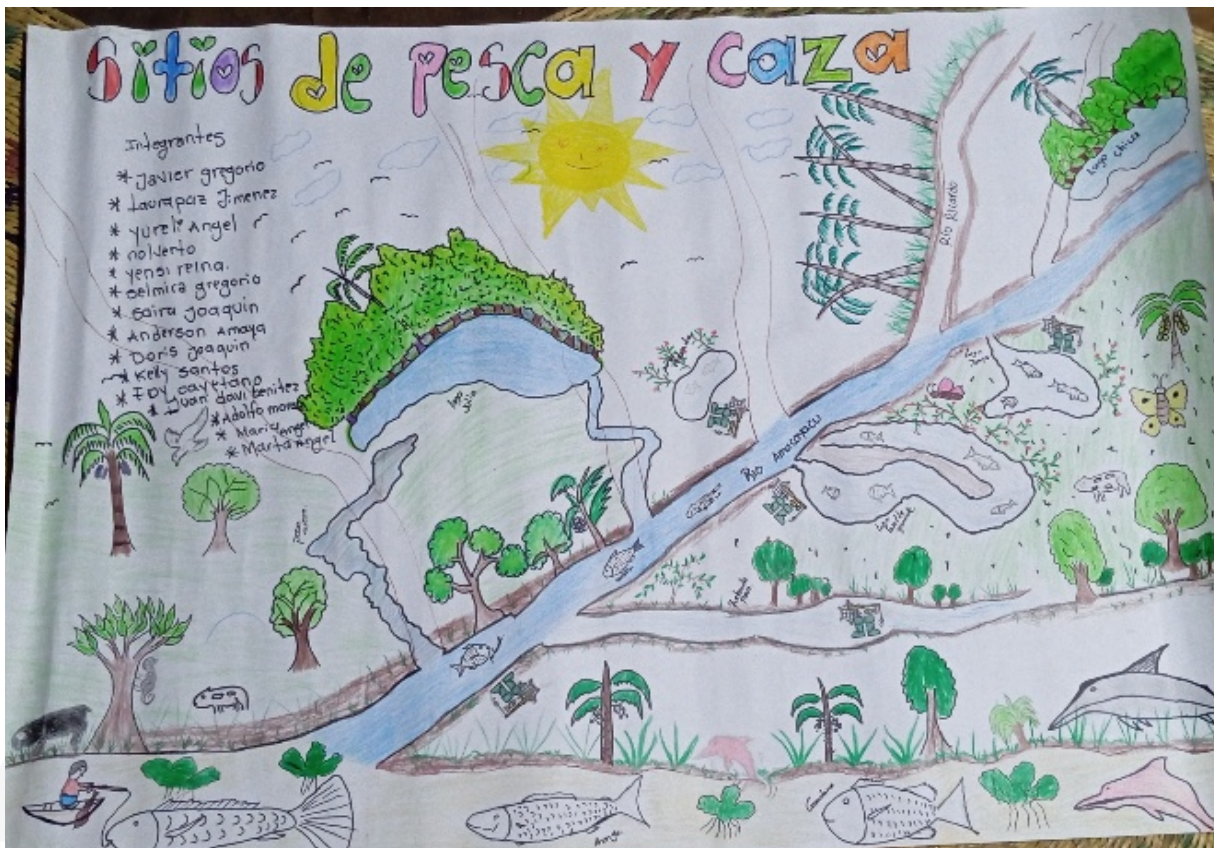 Sitios de pesca y caza
Integrantes
* Javier gregorio
* Laurapaz Jimenez
* yureli Angel
* nolverto
* yensi reina.
* Selmira gregorio
* Saira Joaquin
* Anderson Amaya
* Doris Joaquin
* Kelly Santos
* cayetano
* Juan davi benitez
* Adolfo
* Maria Angel
* Marta Angel
Rio Ricardo
Lago chicua
Lago Julio
Rio Amacayacu
Lago
Gamitana